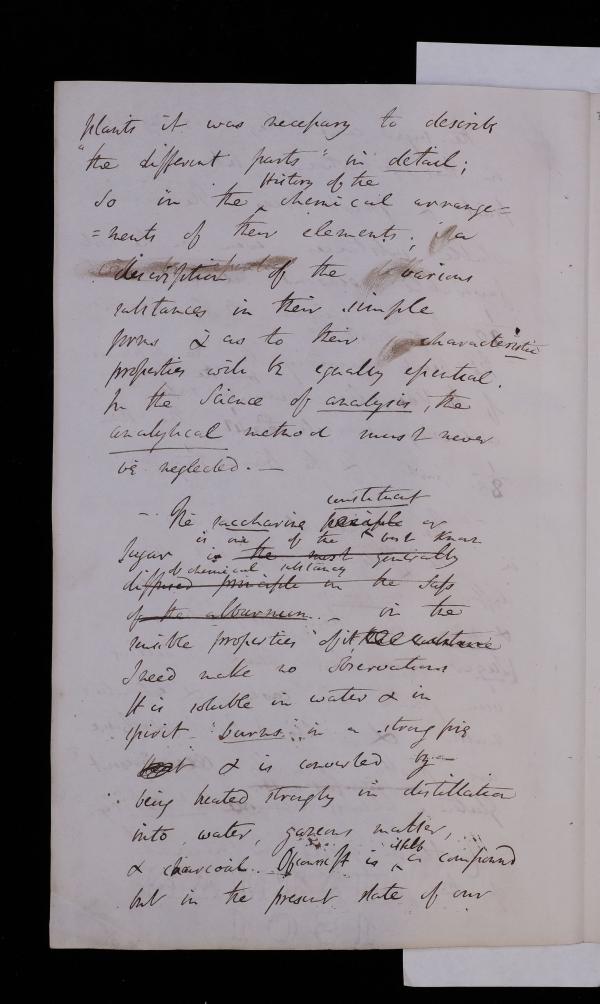 plants it was necessary to describe
"the different parts" in detail;
History of the
So in the chemical arrange=
=ments of their elements; a
description of the various
substances in their simple
forms & as to their characteristic
properties will be equally essential.
In the Science of analysis, the
analytical method must never
be neglected. —
constituent
— The saccharine principle or
is one of the best known
Sugar is the most generally
chemical substances
diffused principle in the saps
of the alburnum. — in the
sensible properties of it the substance
I need make no observations
It is soluble in water & in
spirit burns in a strong fire
heat & is converted by
being heated strongly in distillation
into water, gazeous matter,
itself
& charcoal. Of course It is a compound
but in the present state of our